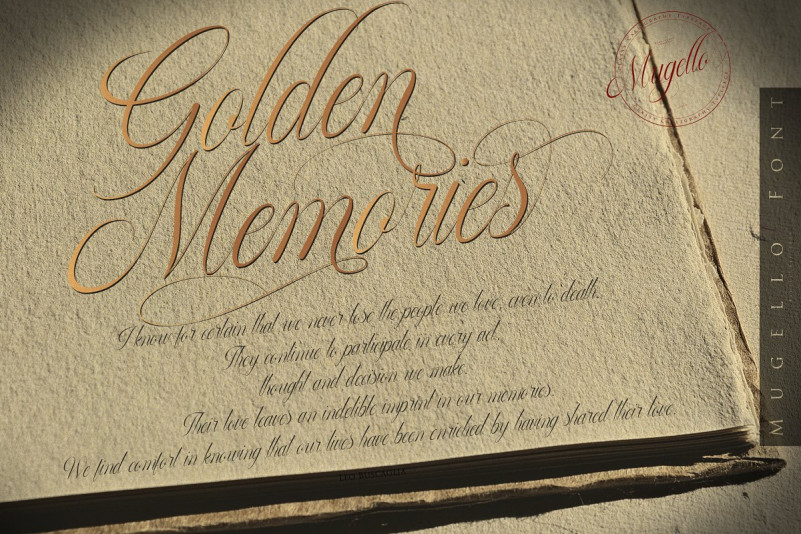 Golden
Memories
I know for certain that we never lose the people we love, even to death.
They continue to participate in every act,
thought and decision we make.
Their love leaves an indelible imprint in our memories.
We find comfort in knowing that our lives have been enriched by having shared their love.
LEO BUSCAGLIA
Mugello
MUGELLO FONT